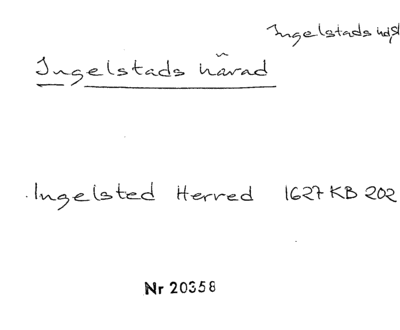 Ingelstads hdgl
Ingelstads härad
Ingelsted Herred 1627 KB 202
Nr 20358